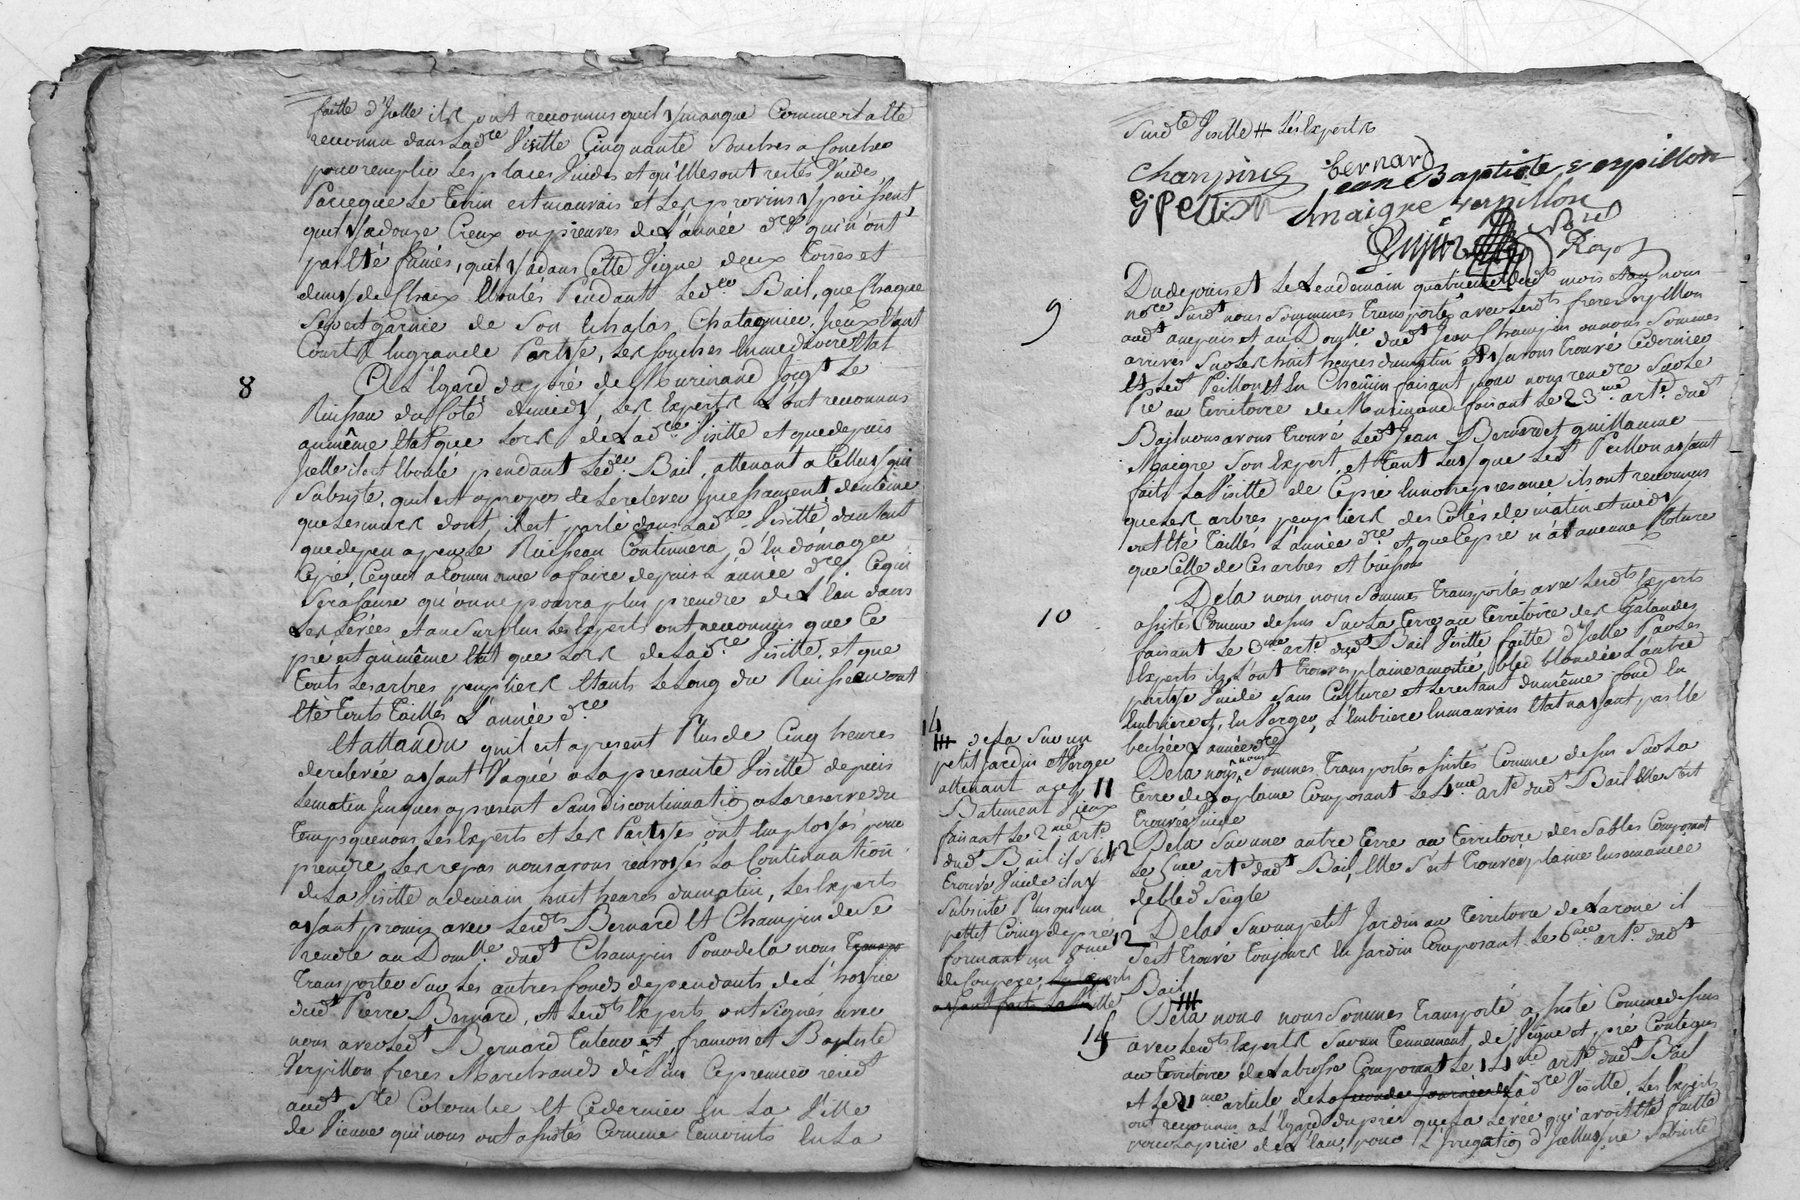 faitte d'Jcelle ils ont reconnus quil y manque Comme est a lté
reconnu dans Ladre Visitte Cinquante Souches a Souches
pour remplir Les places Vuides et qu'illes sont restés Vuides
Parceque Le Terrin est mauvais et Les provins y perissent,
quil y a douze Creux ou preuves de L'année dre qui n'ont
pas lté fumés, quil y a dans Cette Vigne deux Toises et
demy de Chaix Eboulés Pendant Ledit Bail, que Chaque
Sep est Garnie de Son Echalas Chatagnier, Jceux Etant
Court En grande Partye, Les souches En mediocre Etat
8
A L'Egard du pré de Murinand Joigt Le
Ruisseau du Coté de midy, Les Experts L'ont reconnus
au même Etat que Lors de Ladre Visitte et que depuis
Jcelle il est Eboulé pendant Ledit Bail, attenant a Celluy qui
Subsiste, quil est apropos de Le relever Jncessament de même
que Les murs dont il est parlé dans Ladre Visitte d'autant
que de peu a peu Le Ruisseau Continuera d'Endomager
Cepré, Ce quil a Commencé a faire depuis L'année dre Ce qui
Sera Cause qu'on ne pourra plus prendre de L'Eau dans
Les Levées et au Surplus Les Experts ont reconnus que Ce
pré est au même Etat que Lors de Ladre Visitte, et que
Touts Les arbres peupliers Etants Le Long du Ruisseau ont
Eté Touts Taillés L'année dre
Et attandu quil est apresent Plus de Cinq heures
de relevée ayant Vaqué a La presante Visitte depuis
Le matin Jusques apresent Sans discontinuation a La reserve du
Temps que nous, Les Experts et Les Partyes ont Employés pour
prendre Les repas nous avons renvoyés La Continuation
de La Visitte a demain huit heures du matin, Les Experts
ayant promis avec Lesdts Bernard Et Champin de Se
rendre au Domlle dudt Champin Pour de la nous Transpo
Transporter Sur Les autres fonds dependants de L'hoyrie
dud Pierre Bernard, et Lesdts Experts ont Signés avec
nous avec Ledt Bernard Tuteur et francois et Baptiste
Verpillon freres Marchands Cepremier
audt Ste Colombe Et Cedernier En La Ville
de Vienne qui nous ont assistés Comme Temoints En La
Susdte Visitte # Les Experts
Champin Bernard
Jean Baptiste verpillon
G. Pellion Maigne verpillon
9
Dudepuis et Le Lendemain quatrieme dudt mois et an nous
nore Susdt nous Sommes Transportés avec Lesdts freres Verpillon
audt Ampuis et au Domlle dudt Jean Champin ou nous Sommes
arrivés Sur Les huit heures du matin et y avons Trouvé Cedernier
Et Ledt Peillon Et En Chemin faisant pour nous rendre Sur Le
Pré au Territoire de Murinand faisant Le 23me arte dudt
Bail nous avons Trouvé Ledt Jean Bernard et guillaume
Maigre Son Expert, et Tant Luy que Ledt Peillon ayant
faits La Visitte de Cepré En notre presance ils ont reconnus
que Les arbres peupliers des Cotés de matin et midy
ont Eté Taillés L'année dre et que Cepré n'a aucune Cloture
que Celle de Ces arbres et buissons
10
De la nous nous Sommes Transportés avec Lesdts Experts
assistés Comme dessus Sur La Terre au Territoire des Galandes
faisant Le 3me arte dudt Bail Visitte faitte d'Jcelle Par Les
Experts ils L'ont Trouvés plaine amoitié bled blondée L'autre
partye Vuide Sans Culture et Le restant du même fond En
Embriere et En Verger, L'Embriere En mauvais Etat nayant pas Eté
bechée L'année dre
11
De la nous nous Sommes Transportés assistés Comme dessus Sur La
Terre de La plaine Composant Le 4me arte dudt Bail Elle S'est
Trouvée Vuide
12
De la Sur une autre Terre au Territoire des Sables Composant
Le 5me arte dudt Bail, Elle S'est Trouvée plaine Ensemancée
de bled Seigle
12
De la Sur un petit Jardin au Territoire de Laroue il
S'est Trouvé Toujours En Jardin Composant Le 6me arte dudt
Bail
14
# de La Sur un
petit Jardin et Verger
attenant a un
Batiment Vieux
faisant Le 2me arte
dudt Bail il S'est
Trouvé Vuide il n'y
Subsiste Plus qu'un
pettit Coing de pré
formant un
de Couroye, Les Experts
ayant faits La Visitte
15
# De la nous nous Sommes Transporté assisté Comme dessus
avec Lesdts Experts Sur un Tennement de Vigne et pré Contigus
au Territoire de Labrosse Composant Le 14me arte dudt Bail
et Le 21me article de La seconde Journée de Ladre Visitte, Les Experts
ont reconnus a L'Egard du pré que La Levée qui avoit Eté faitte
pour La prise de L'Eau, pour L'Jrrigation d'Jcelluy ne Subsiste